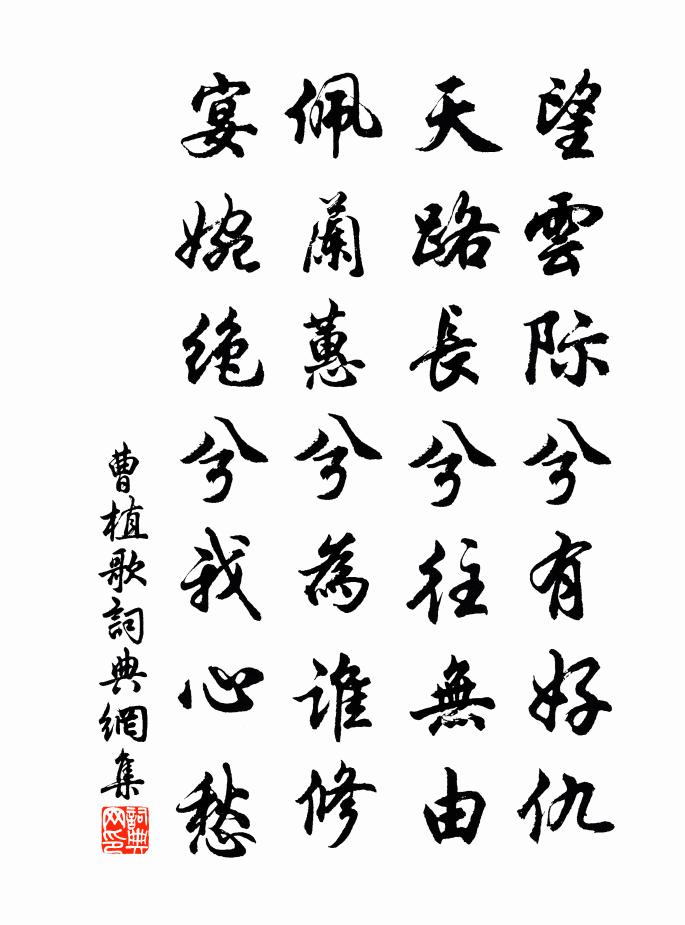 望雲际兮有好仇
天路長兮往無由
佩蘭蕙兮為誰修
宴婉绝兮我心愁
曹植歌詞典網集
詞典
网印